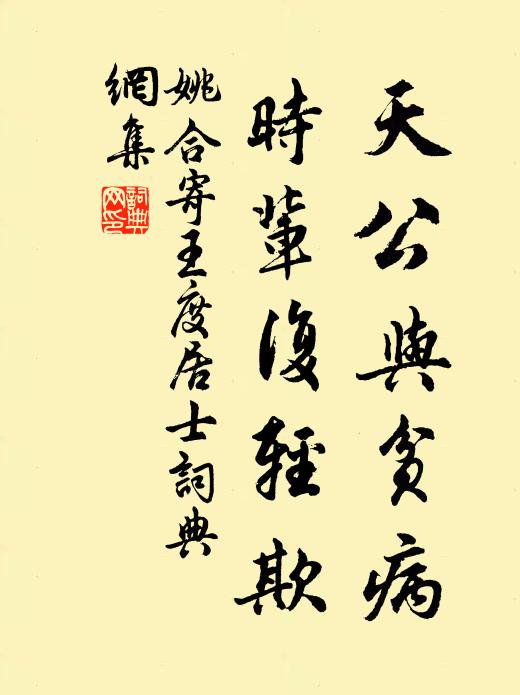 天公與貧病
時輩復輕欺
姚合寄王度居士詞典
網集
詞典
网印